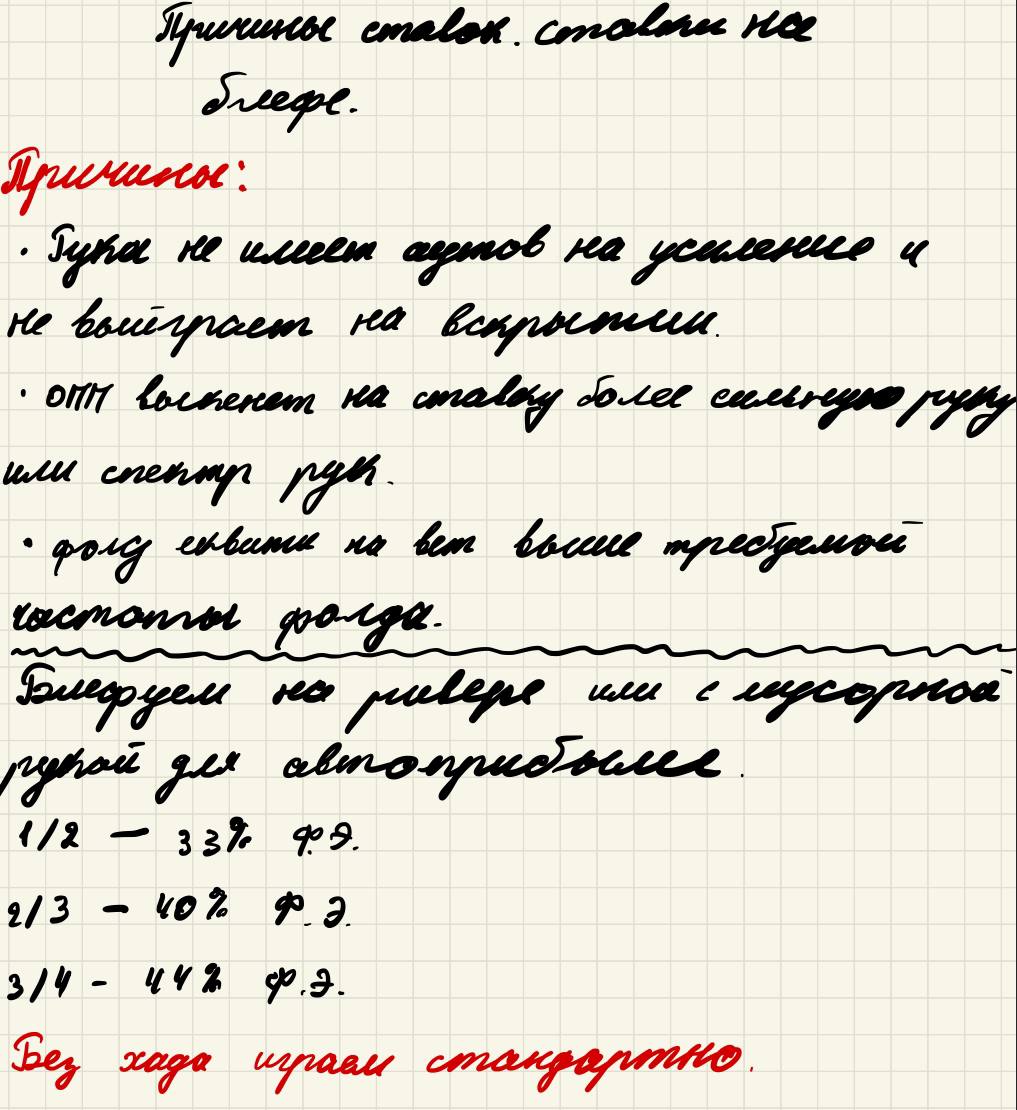 Причины ставок. ставки на
блефе.
Причины:
· Рука не имеет аутов на усиление и
не выиграет на вскрытии.
· ОПП выкенет на ставку более сильную руку
или спектр рук.
· фолд еквити на бет выше требуемой
частоты фолда.
Блефуем на ривере или с мусорной
рукой для автоприбыле.
1/2 — 33% ф.э.
2/3 - 40% Ф.Э.
3/4 - 44% Ф.Э.
Без хада играем стандартно.